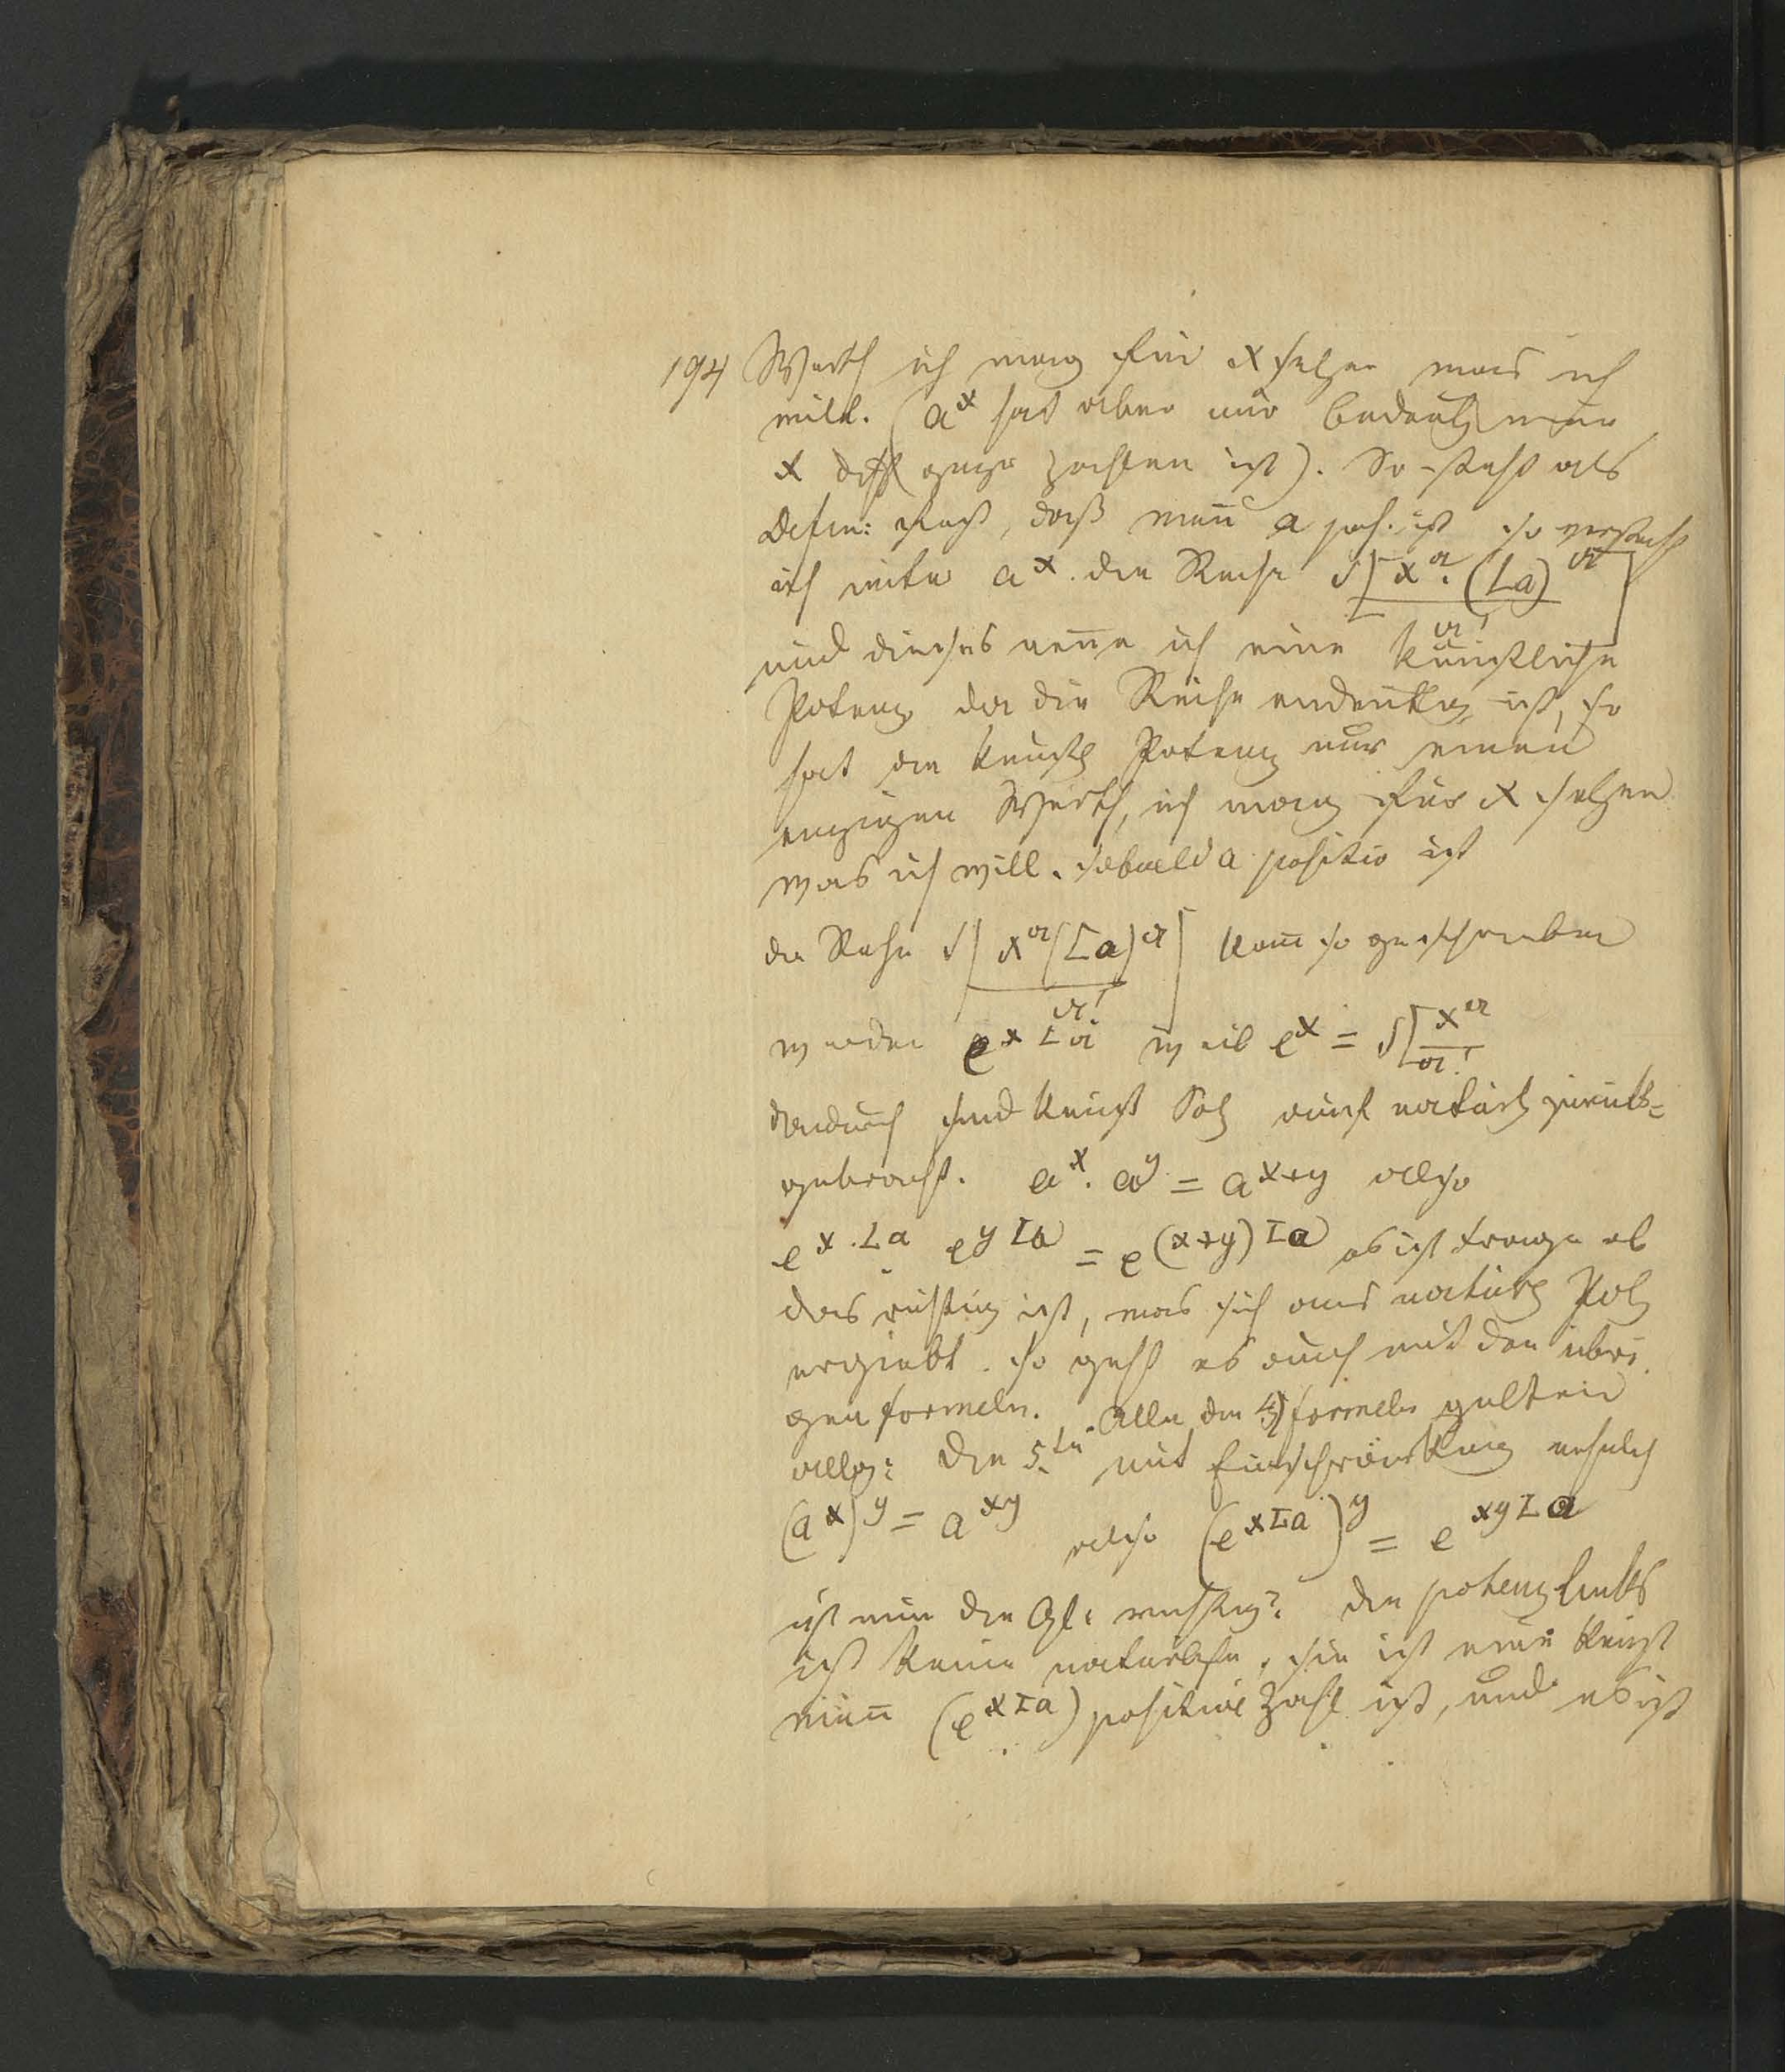 194 Werth ich mag für x setzen was ich
will. (a^x hat aber nur Bedeutg wenn
x diff ganze Zahlen ist). So steht als
Defin: fest, daß wen̅ a pos. ist so versteh
ich unter a^x. die Reihe S[x^a. (La)^a / a!]
und dieses nen̅e ich eine künstliche
Potenz da die Reihe eindeutig ist, so
hat die künstl Potenz nur einen
einzigen Werth, ich mag für x setzen
was ich will. sobald a positiv ist
die Reihe S[x^a (La)^a / a!] kan̅ so geschrieben
werden e^{x La} weil e^x = S[x^a / a!]
dadurch sind künst Potz auf natürl zurück=
gebracht. a^x. a^y = a^{x+y} also
e^{x.La} . e^{y La} = e^{(x+y) La} es ist Frage ob
das richtig ist, was sich aus natürl Potz
ergiebt. so geht es auch mit den übri
gen formeln. Alle die 4 formeln gelten
allg: die 5.te mit Einschränkung nehmlich
(a^x)^y = a^{xy} also (e^{x La})^y = e^{xy La}
ist nun die Gl: richtig? die potenz links
ist keine natürliche, sie ist eine künst
wen̅ (e^{x La}) positive Zahl ist, und es ist